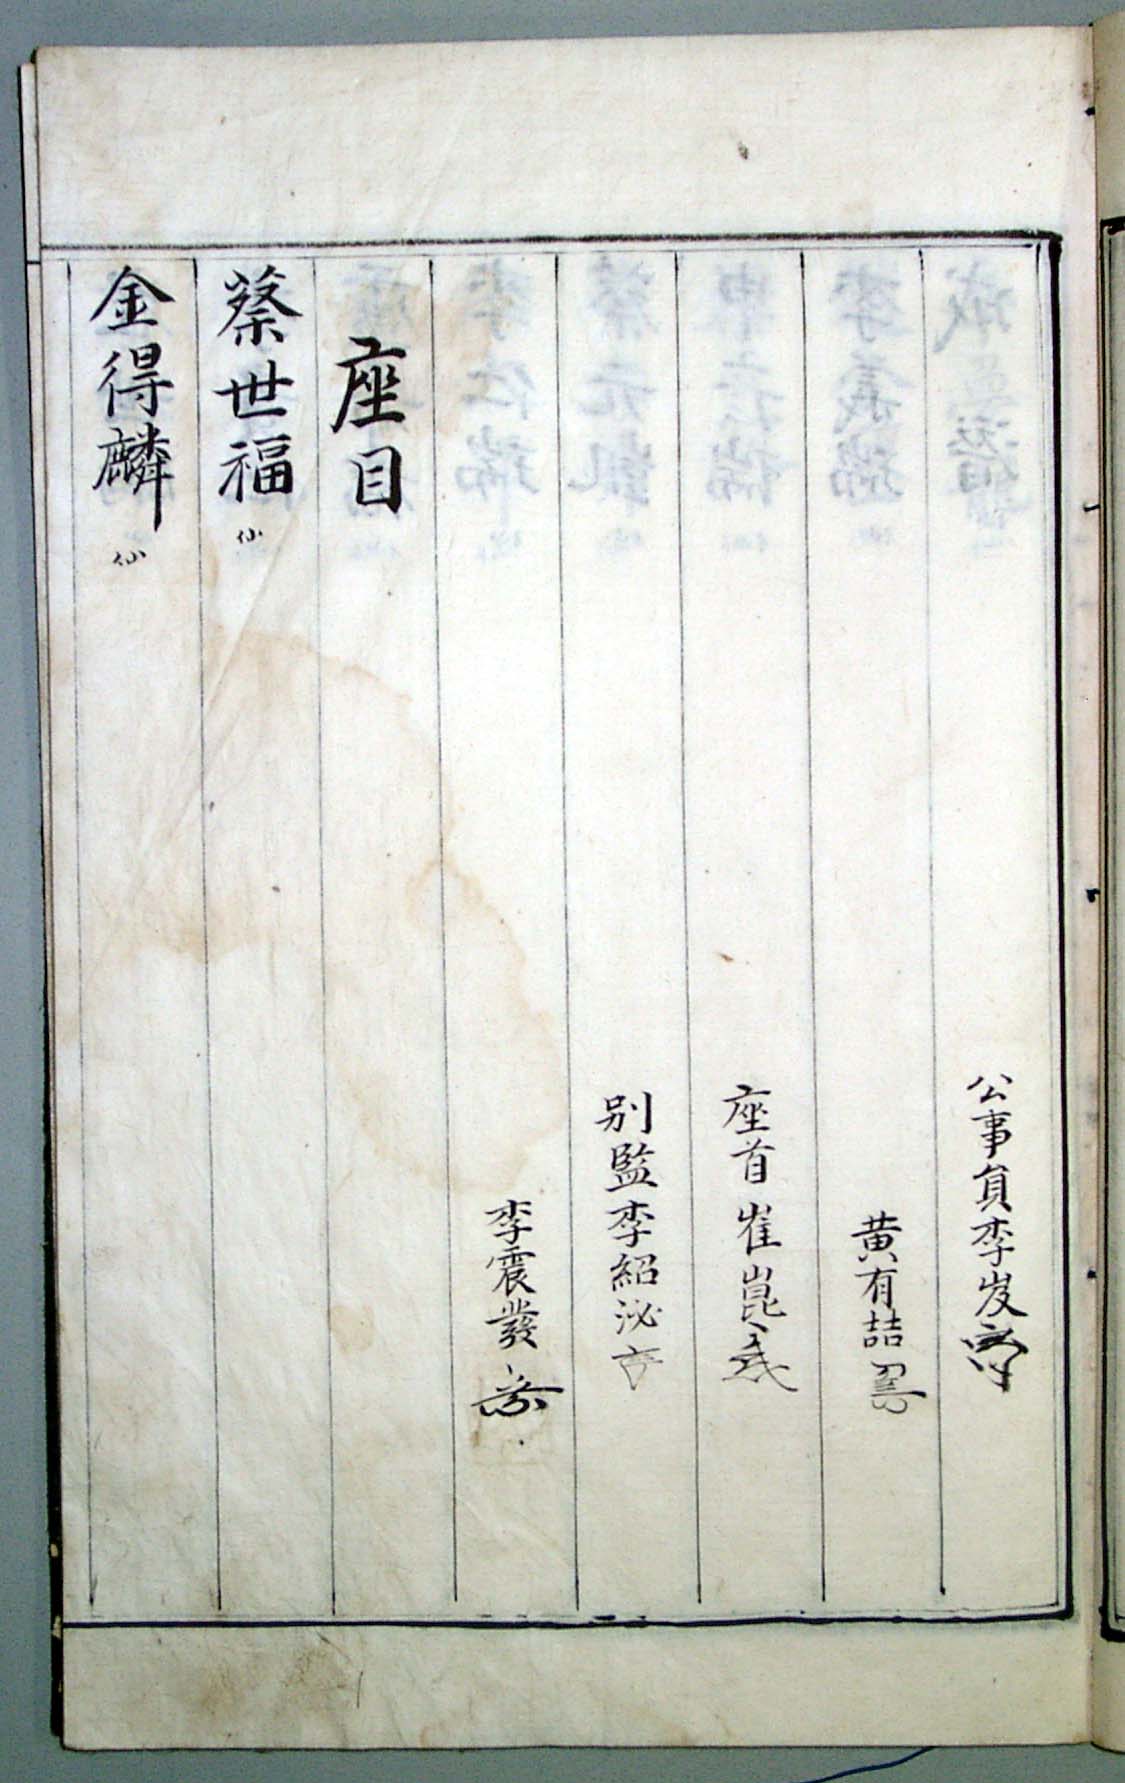 公事員李岌
黄有喆
座首崔崑
別監李紹泌
李震發
座目
蔡世福
金得麟